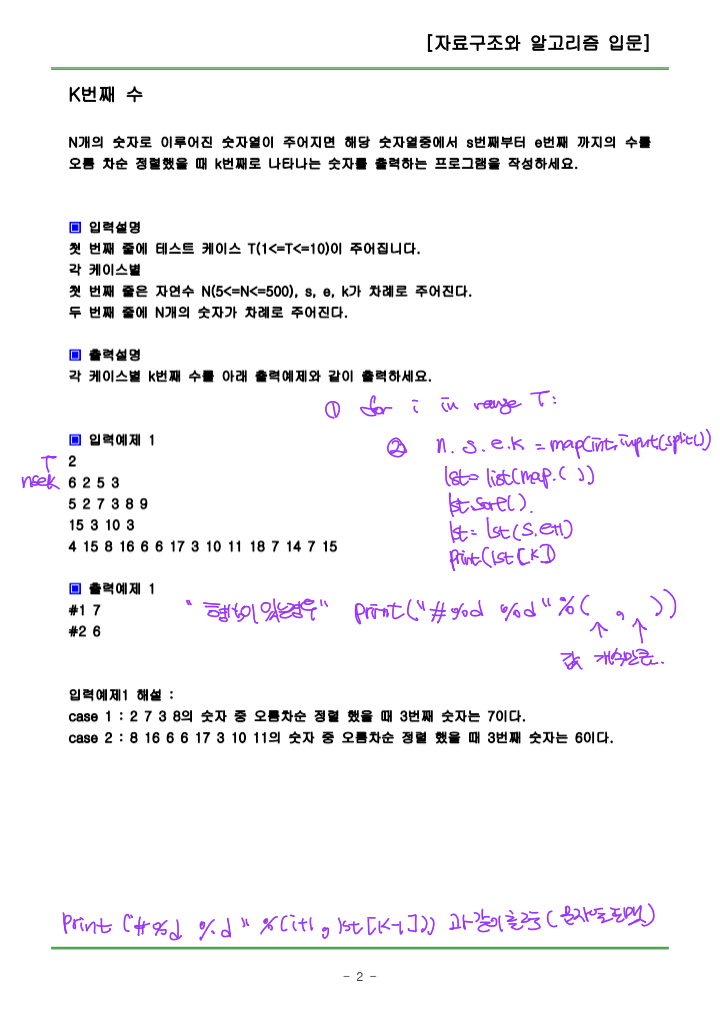 [자료구조와 알고리즘 입문]
K번째 수
N개의 숫자로 이루어진 숫자열이 주어지면 해당 숫자열중에서 s번째부터 e번째 까지의 수를
오름 차순 정렬했을 때 k번째로 나타나는 숫자를 출력하는 프로그램을 작성하세요.
▣ 입력설명
첫 번째 줄에 테스트 케이스 T(1<=T<=10)이 주어집니다.
각 케이스별
첫 번째 줄은 자연수 N(5<=N<=500), s, e, k가 차례로 주어진다.
두 번째 줄에 N개의 숫자가 차례로 주어진다.
▣ 출력설명
각 케이스별 k번째 수를 아래 출력예제와 같이 출력하세요.
① for i in range T:
▣ 입력예제 1
② n.s.e.k = map(int, input(split())
T 2
nsek 6 2 5 3
lst= list(map.( ))
5 2 7 3 8 9
lst.sort().
15 3 10 3
lst= lst(s.e+1)
4 15 8 16 6 6 17 3 10 11 18 7 14 7 15
print(lst[K])
▣ 출력예제 1
#1 7
"형식이 있는경우" print("#%d %d"%( , ))
#2 6
값 개수만큼.
입력예제1 해설 :
case 1 : 2 7 3 8의 숫자 중 오름차순 정렬 했을 때 3번째 숫자는 7이다.
case 2 : 8 16 6 6 17 3 10 11의 숫자 중 오름차순 정렬 했을 때 3번째 숫자는 6이다.
print ("#%d %d" %(i+1, lst[K-1])) 과 같이 출력
- 2 -